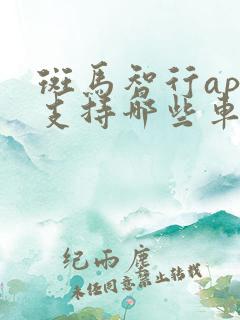 斑馬智行ap
支持哪些車
紀雨塵
未经同意禁止转载